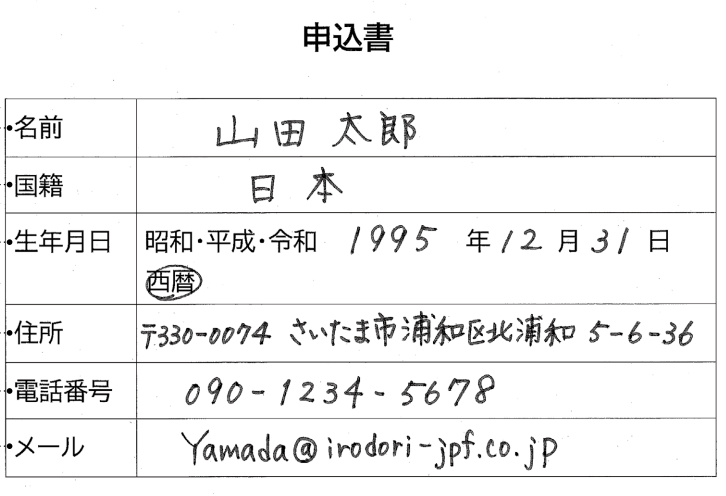 申込書
・名前 山田 太郎
・国籍 日本
・生年月日 昭和・平成・令和 1995 年 12 月 31 日
西暦
・住所 〒330-0074 さいたま市浦和区北浦和 5-6-36
・電話番号 090-1234-5678
・メール Yamada@irodori-jpf.co.jp